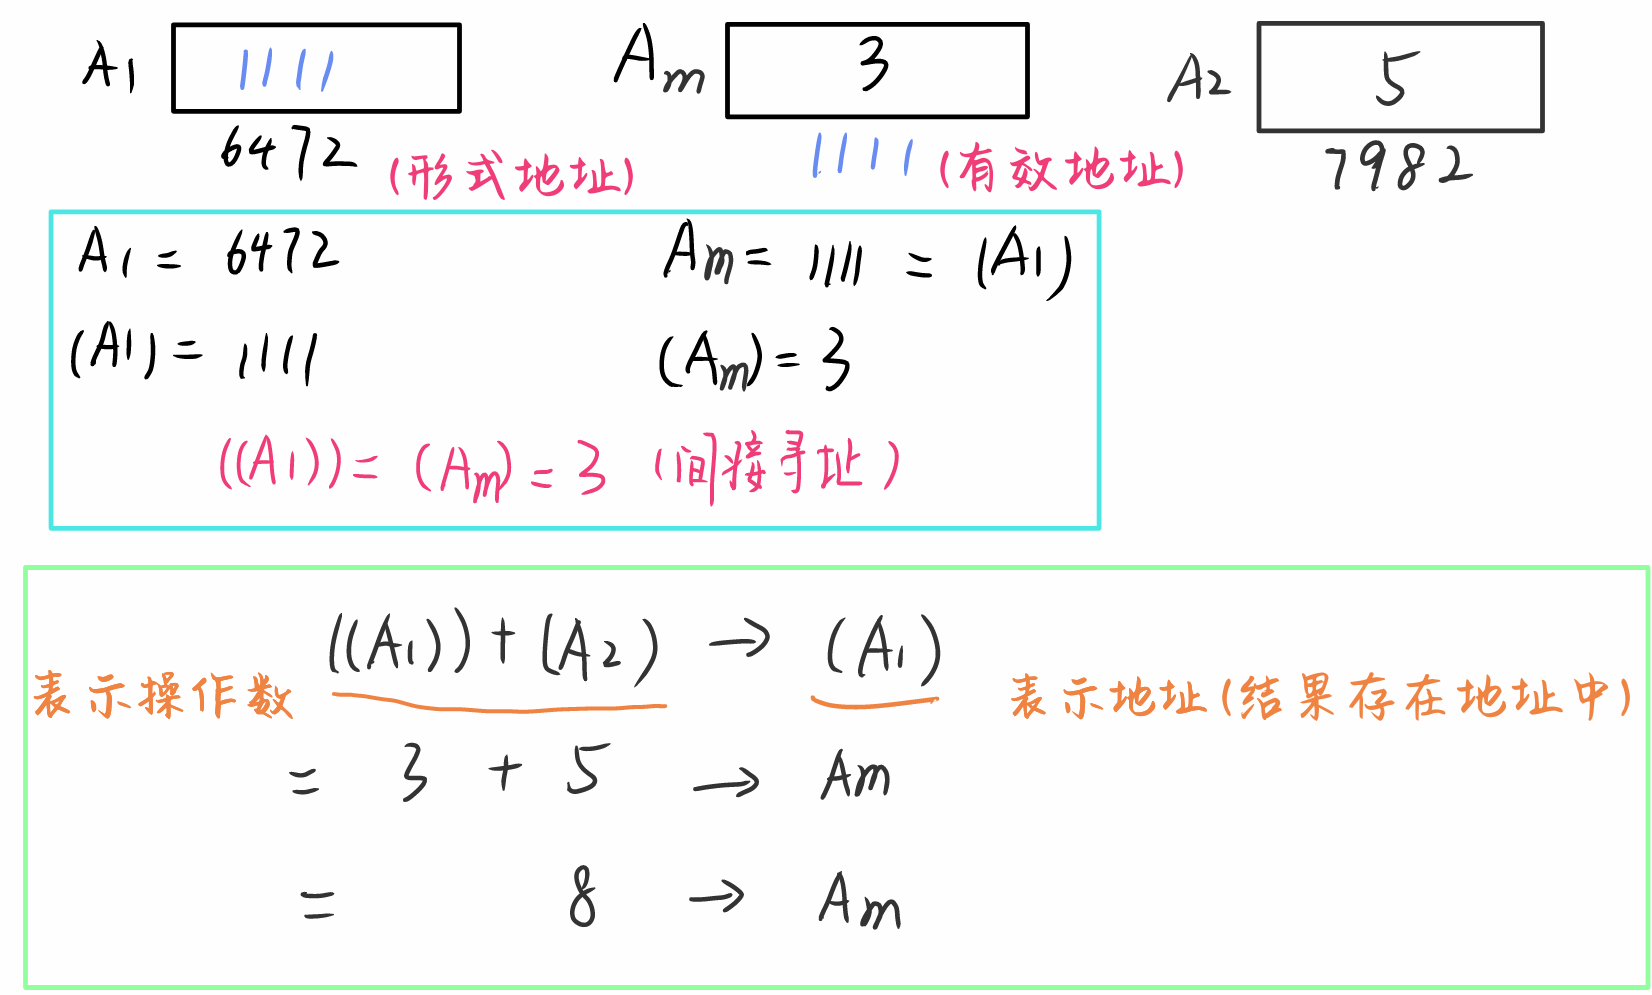 A1 1111 Am 3 A2 5
6472 (形式地址) 1111 (有效地址) 7982
A1 = 6472 Am = 1111 = (A1)
(A1) = 1111 (Am) = 3
((A1)) = (Am) = 3 (间接寻址)
((A1)) + (A2) → (A1)
表示操作数 表示地址(结果存在地址中)
= 3 + 5 → Am
= 8 → Am